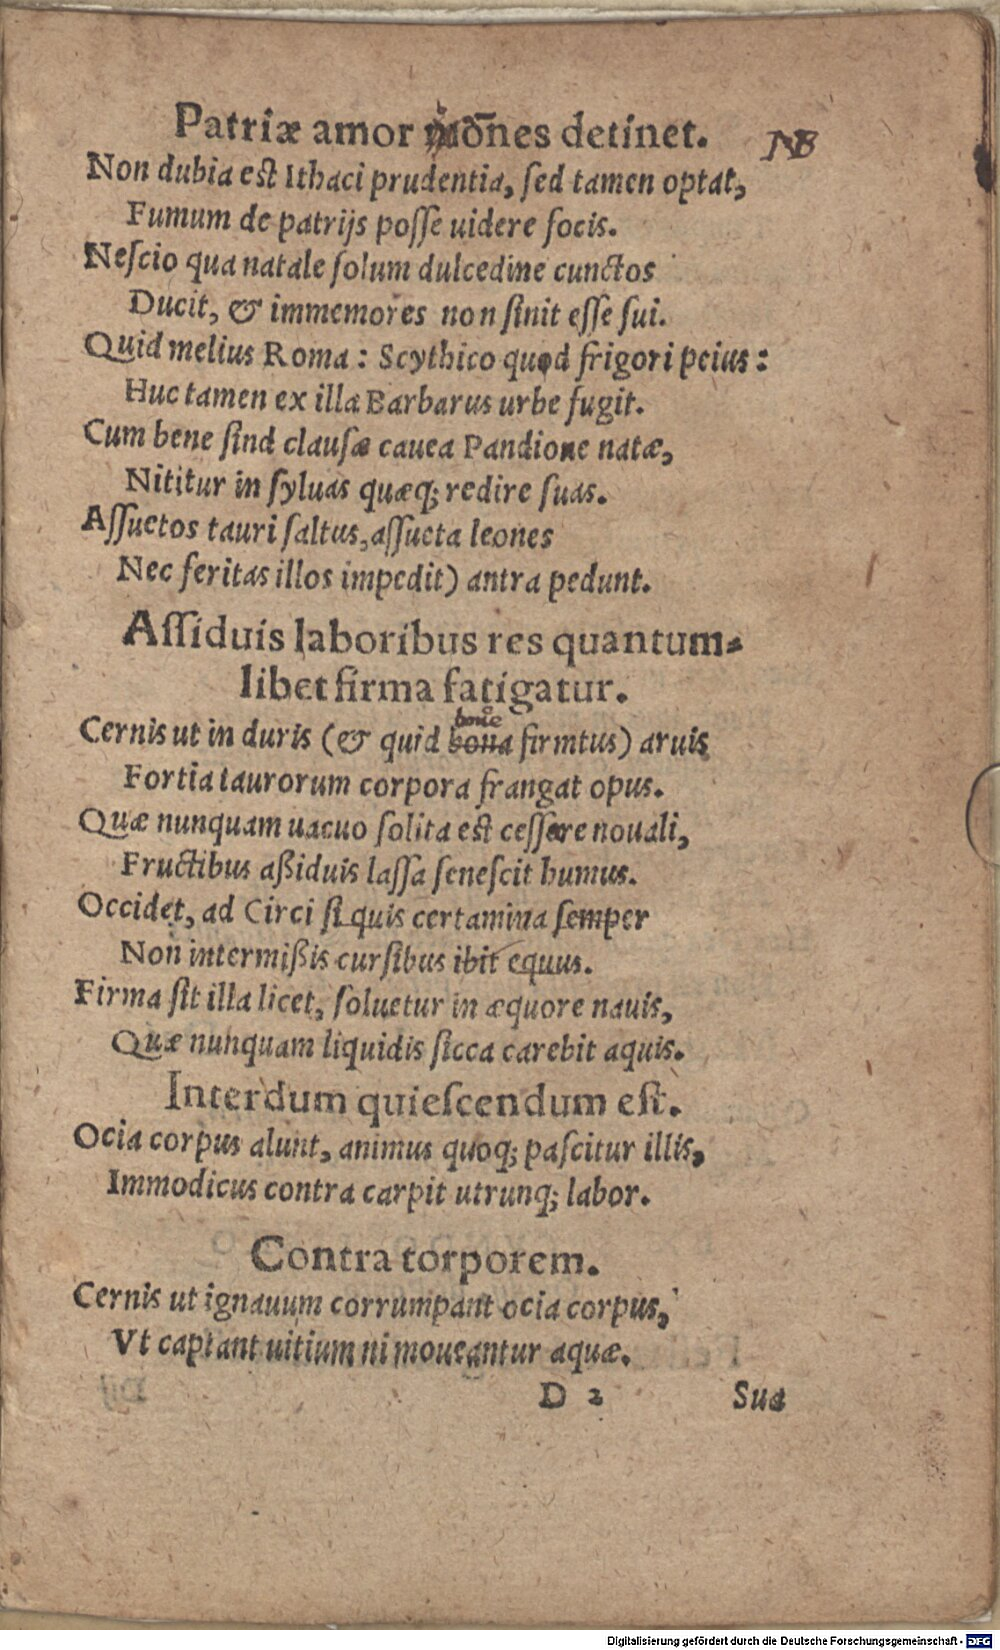 Patriæ amor õnes detinet. NB
Non dubia est Ithaci prudentia, sed tamen optat,
Fumum de patrijs posse uidere focis.
Nescio qua natale solum dulcedine cunctos
Ducit, & immemores non sinit esse sui.
Quid melius Roma: Scythico quod frigori peius:
Huc tamen ex illa Barbarus urbe fugit.
Cum bene sind clausæ cauea Pandione natæ,
Nititur in syluas quæq; redire suas.
Assuetos tauri saltus, assueta leones
Nec feritas illos impedit) antra pedunt.
Assiduis laboribus res quantum-
libet firma fatigatur.
boue
Cernis ut in duris (& quid boua firmtus) aruis
Fortia taurorum corpora frangat opus.
Quæ nunquam uacuo solita est cessere nouali,
Fructibus aßiduis lassa senescit humus.
Occidet, ad Circi si quis certamina semper
Non intermißis cursibus ibit equus.
Firma sit illa licet, soluetur in æquore nauis,
Quæ nunquam liquidis sicca carebit aquis.
Interdum quiescendum est.
Ocia corpus alunt, animus quoq; pascitur illis,
Immodicus contra carpit utrunq; labor.
Contra torporem.
Cernis ut ignauum corrumpant ocia corpus,
Vt captant uitium ni moueantur aquæ.
D 2 Sua
Digitalisierung gefördert durch die Deutsche Forschungsgemeinschaft - DFG